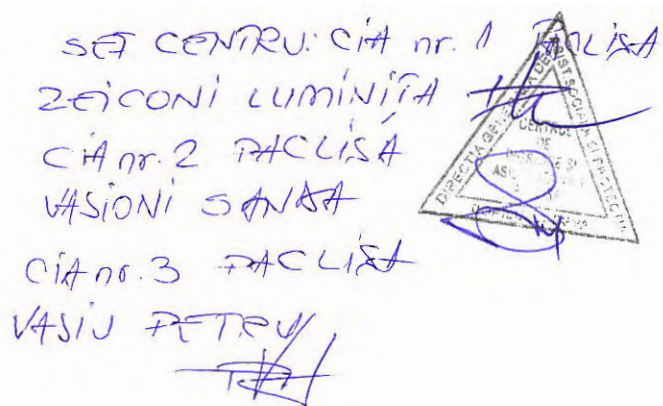 SEF CENTRU: CIA nr. 1 PACLISA
ZEICONI LUMINITA
CIA nr. 2 PACLISA
VASIONI SANDA
CIA nr. 3 PACLISA
VASIU PETRU
DIRECTIA GENERALA DE ASIST SOCIALA SI PROTECTIA
CENTRUL
DE
INGRIJIRE SI